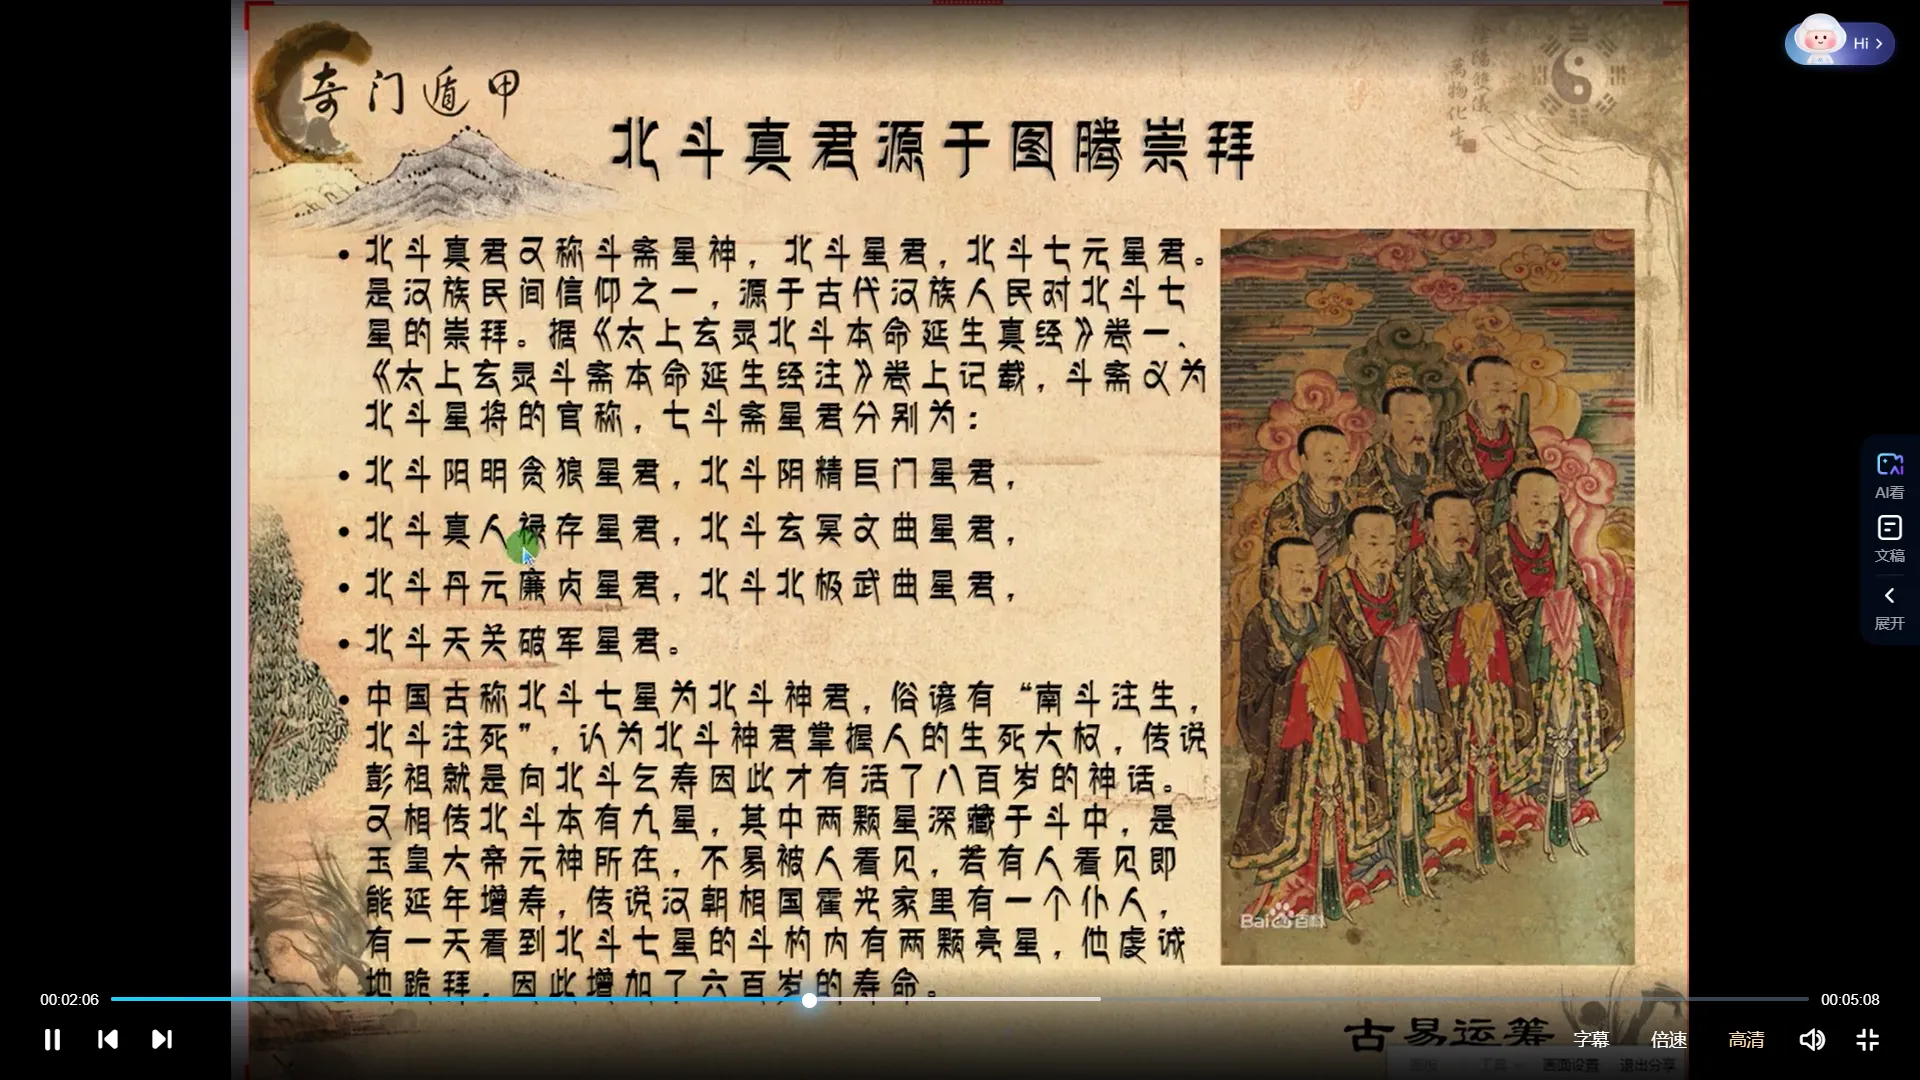 奇门遁甲
Hi
陰陽雙儀
萬物化生
北斗真君源于图腾崇拜
• 北斗真君又称斗斋星神，北斗星君，北斗七元星君。
是汉族民间信仰之一，源于古代汉族人民对北斗七
星的崇拜。据《太上玄灵北斗本命延生真经》卷一、
《太上玄灵斗斋本命延生经注》卷上记载，斗斋义为
北斗星将的官称，七斗斋星君分别为：
• 北斗阳明贪狼星君，北斗阴精巨门星君，
• 北斗真人禄存星君，北斗玄冥文曲星君，
• 北斗丹元廉贞星君，北斗北极武曲星君，
• 北斗天关破军星君。
• 中国古称北斗七星为北斗神君，俗谚有“南斗注生，
北斗注死”，认为北斗神君掌握人的生死大权，传说
彭祖就是向北斗乞寿因此才有活了八百岁的神话。
又相传北斗本有九星，其中两颗星深藏于斗中，是
玉皇大帝元神所在，不易被人看见，若有人看见即
能延年增寿，传说汉朝相国霍光家里有一个仆人，
有一天看到北斗七星的斗杓内有两颗亮星，他虔诚
地跪拜，因此增加了六百岁的寿命。
Bai百科
AI看
文稿
展开
00:02:06
00:05:08
古易运筹
字幕
倍速
高清
画面设置
退出分享